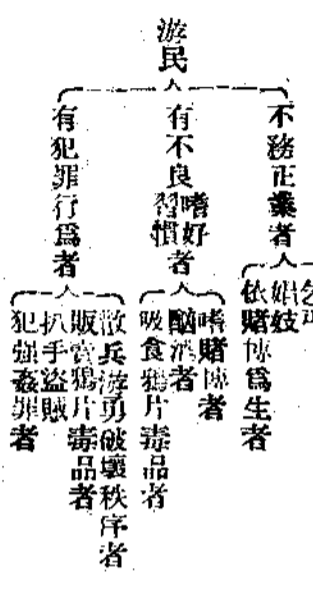 游民
不務正業者
娼妓
依賭博爲生者
有不良嗜好習慣者
嗜賭博者
酗酒者
吸食鴉片毒品者
有犯罪行爲者
散兵游勇破壞秩序者
販賣鴉片毒品者
扒手盜賊
犯強姦罪者